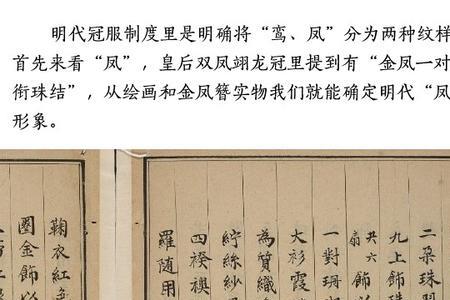 明代冠服制度里是明确将“鸾、凤”分为两种纹样
首先来看“凤”，皇后双凤翊龙冠里提到有“金凤一对
衔珠结”，从绘画和金凤簪实物我们就能确定明代“凤
形象。
二朶珠翠
九上飾珠
共六扇飾以
一對珊
大衫霞
為質織
紵絲紗
四䙆襖
羅隨用
鞠衣紅
圈金飾以